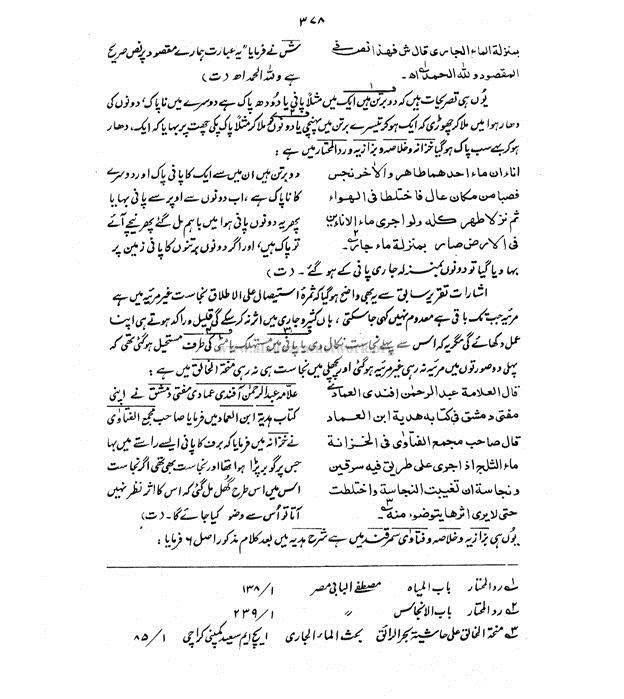 ۳۷۸
بمنزلة الماء الجاری قال ش فهذا نص فی المقصود ولله الحمد اھ۔
ش نے فرمایا "یہ عبارت ہمارے مقصود پر نص صریح ہے وللہ الحمد اھ (ت)
یُوں ہی تصریحات ہیں کہ دو برتن ہیں ایک میں مثلاً پانی یا دُودھ پاک ہے دوسرے میں ناپاک، دونوں کی
دھار ہوا میں ملا کر چھوڑی کہ ایک ہو کر تیسرے برتن میں پہنچی یا دونوں کو ملا کر مثلاً پاک پکی چھت پر بہایا کہ ایک دھار
ہو کر بہے سب پاک ہوگیا خزانہ وخلاصہ وبزازیہ وردالمحتار میں ہے :
اناءان ماء احدهما طاهر والاٰخر نجس
فصبا من مکان عال فاختلطا فی الهواء
ثم نزلا طهر کله ولو اجری ماء الاناءین
فی الارض صار بمنزلة ماء جار۔
دو برتن ہیں ان میں سے ایک کا پانی پاک اور دوسرے
کا ناپاک ہے، اب دونوں سے اوپر سے پانی بہایا
پھر یہ دونوں پانی ہوا میں باہم مل گئے پھر نیچے آئے
تو پاک ہیں، اور اگر دونوں برتنوں کا پانی زمین پر
بہا دیا گیا تو دونوں بمنزلہ جاری پانی کے ہوگئے۔ (ت)
اشارات تقریر سابق سے یہ بھی واضح ہوگیا کہ ثمرۂ استیصال علی الاطلاق نجاست غیر مرئیہ میں ہے
مرئیہ جب تک باقی ہے معدوم نہیں کہی جاسکتی، ہاں کثیر و جاری میں اثر نہ کرسکے گی قلیل و راکد ہوتے ہی اپنا
عمل دکھائے گی مگر یہ کہ اس سے پہلے نجاست نکال دی یا پانی میں مستہلک یا مٹی کی طرف مستحیل ہوگئی تھی کہ
پہلی دو صورتوں میں مرئیہ نہ رہی غیر مرئیہ ہوگئی اور پچھلی میں نجاست ہی نہ رہی منحۃ الخالق میں ہے :
قال العلامة عبدالرحمٰن افندی العمادی
مفتی دمشق فی کتابه هدیة ابن العماد
قال صاحب مجمع الفتاوٰی فی الخزانة
ماء الثلج اذا جری علی طریق فیه سرقین
ونجاسة ان تغیبت النجاسة واختلطت
حتی لایری اثرها یتوضوء منه۔
علامہ عبدالرحمٰن آفندی عمادی مفتی دمشق نے اپنی
کتاب ہدیۃ ابن العماد میں فرمایا صاحب مجمع الفتاوٰی
نے خزانہ میں فرمایا کہ برف کا پانی ایسے راستے میں بہا
جس پر گوبر پڑا ہوا تھا اور نجاست بھی تھی اگر نجاست
اس میں اس طرح گھُل مل گئی کہ اس کا اثر نظر نہیں
آتا تو اُس سے وضو کیا جائے گا۔ (ت)
یُوں ہی بزازیہ وخلاصہ وفتاوٰی سمرقند میں ہے شرح ہدیہ میں بعد کلام مذکور اصل ۶ فرمایا :
۱ ردالمحتار باب المیاہ مصطفی البابی مصر ۱/ ۱۳۸
۲ ردالمحتار باب الانجاس ״ ۱/ ۲۳۹
۳ منحۃ الخالق علی حاشیۃ بحرالرائق بحث الماء الجاری ایچ ایم سعید کمپنی کراچی ۱/ ۸۵